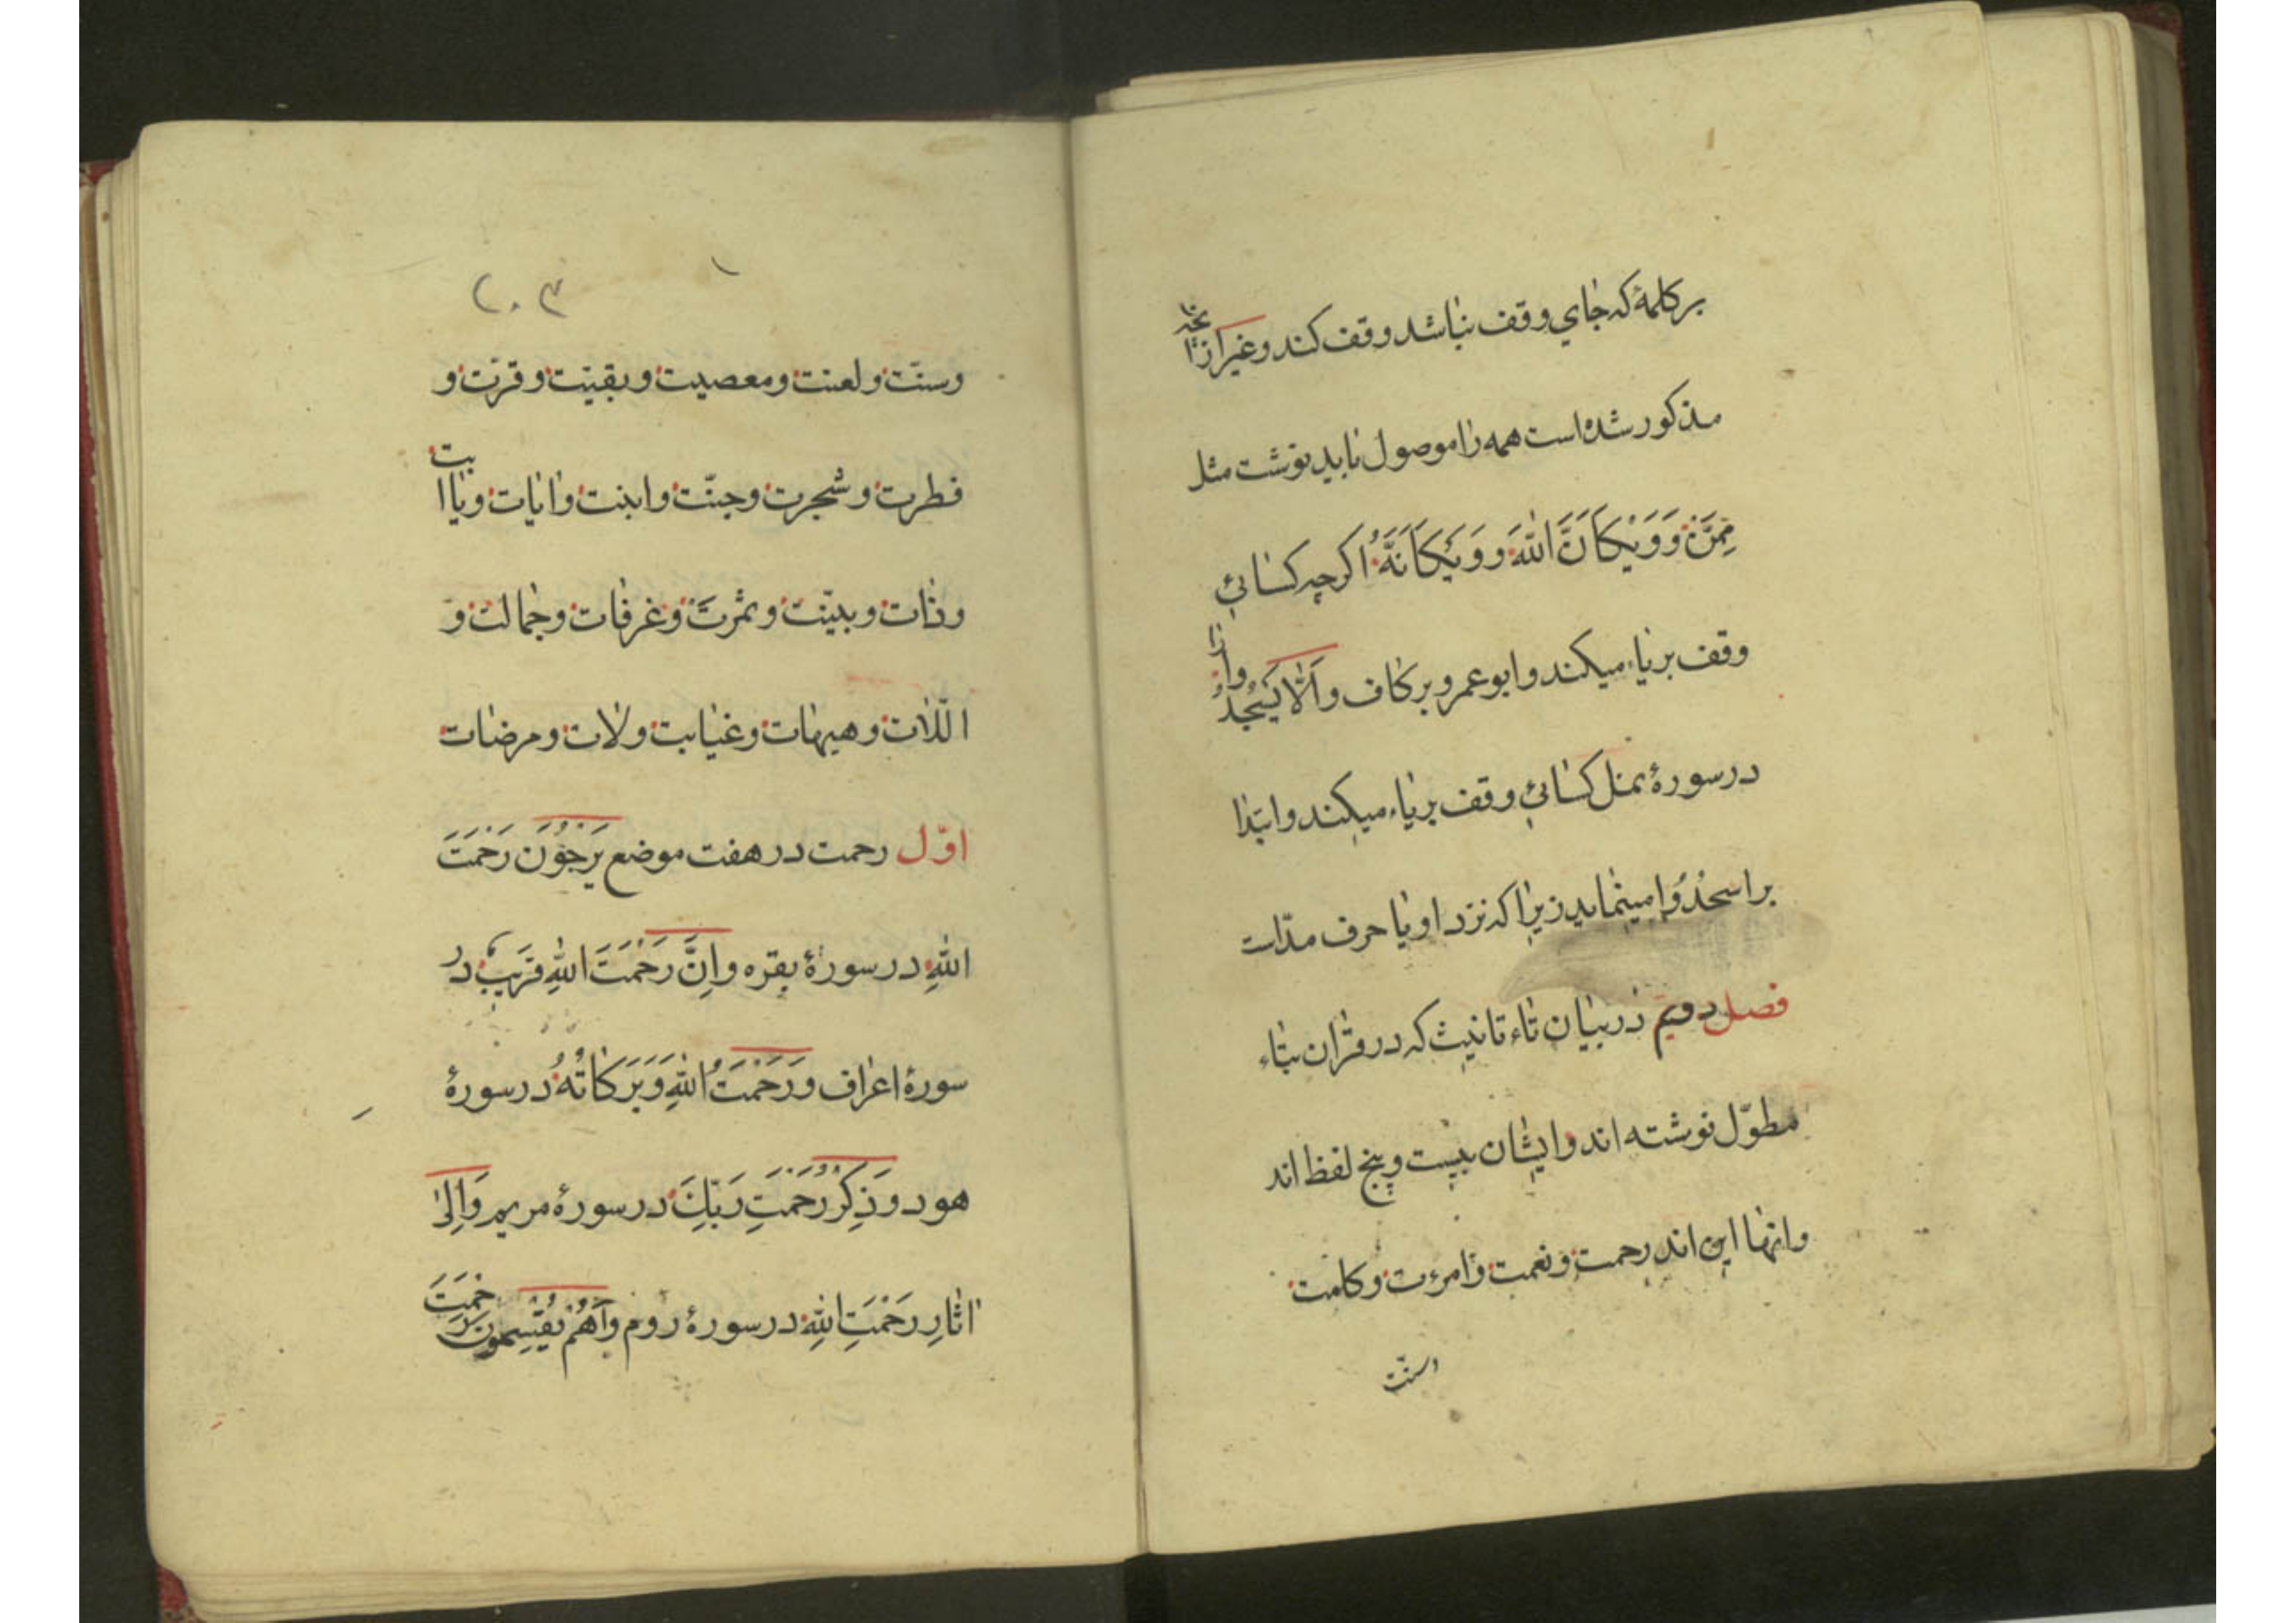 بر کلمهٔ که جای وقف نباشد وقف کند و غیر ازانچه
مذکور شده است همه را موصول باید نوشت مثل
مِمَّنْ وَ وَيْكَاَنَّ اللّٰهَ وَ وَيْكَاَنَّهُ اکرچه کسائی
وقف بر یاء میکند و ابو عمرو بر کاف و اَلّٰا یَسْجُدُوا
در سورهٔ نمل کسائی وقف بر یاء میکند و ابتدا
بر اسجُدُوا مینماید زیرا که نزد او یا حرف نداست
فصل دویم در بیان تاء تانیث که در قران بتاء
مطوّل نوشته اند و ایشان بیست و پنج لفظ اند
و انها این اند رحمت و نعمت و امرءت و کلمت
وسنّت
٢٠٣
وسنّت و لعنت و معصیت و بقیّت و قرّت و
فطرت و شجرت و جنّت و ابنت و ایات و یا ابت
و ذات و بینّت و ثمرت و غرفات و جمالت و
اللّات و هیهات و غیابت و لات و مرضات
اوّل رحمت در هفت موضع یَرْجُوْنَ رَحْمَتَ
اللّٰهِ در سورهٔ بقره و اِنَّ رَحْمَتَ اللّٰهِ قَرَیبٌ در
سورهٔ اعراف و رَحْمَتُ اللّٰهِ وَبَرَکَاتُهُ در سورهٔ
هود و ذِکْرُ رَحْمَتِ رَبِّكَ در سورهٔ مریم وَ اِلیٰ
اثارِ رَحْمَتِ اللّٰهِ در سورهٔ روم و اَهُمْ یَقْسِمُونَ رَحْمَتَ